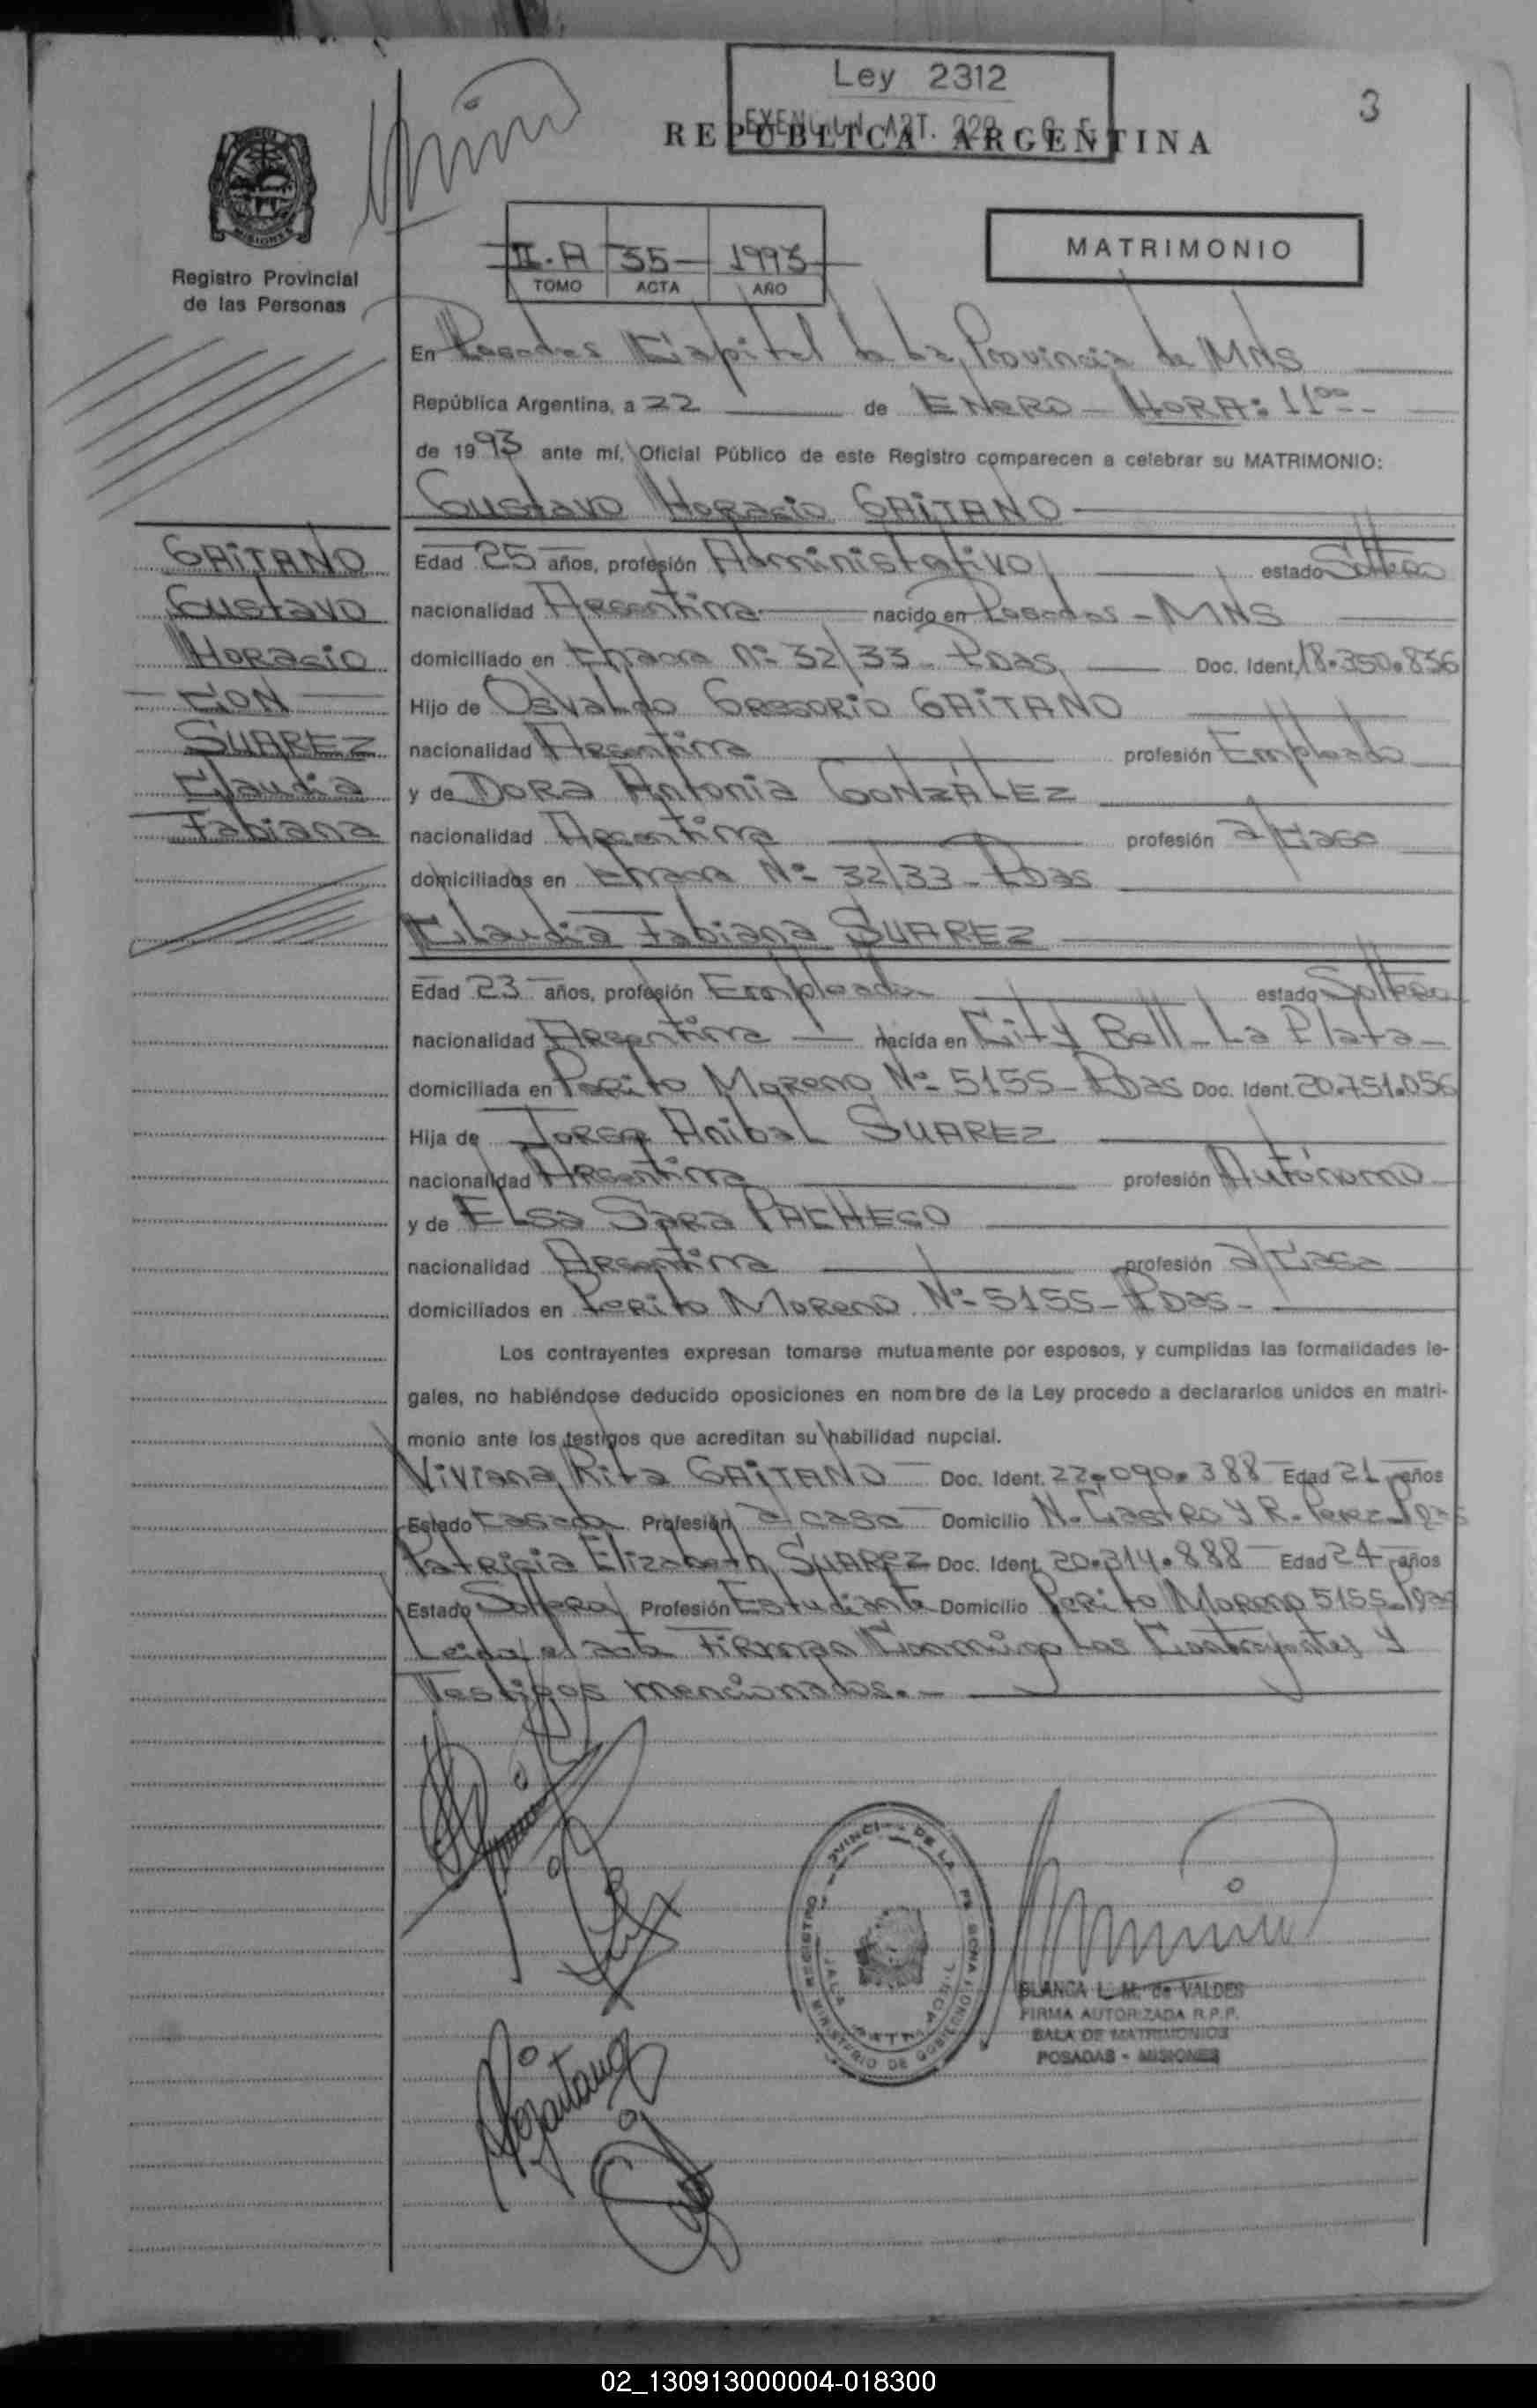 Ley 2312
3
REPUBLICA ARGENTINA
MISIONES
Registro Provincial
de las Personas
II.A 55 1993
TOMO ACTA AÑO
MATRIMONIO
En Posadas Capital de La Provincia de MNS
República Argentina, a 22 de ENERO - HORA: 11⁰⁰-
de 1993 ante mí, Oficial Público de este Registro comparecen a celebrar su MATRIMONIO:
Gustavo Horacio GAITANO
GAITANO
Gustavo
Horacio
CON
SUAREZ
Claudia
Fabiana
Edad 25 años, profesión Administrativo estado Soltero
nacionalidad Argentina nacido en Posadas - MNS
domiciliado en Chacra Nº 32/33 - Pdas Doc. Ident. 18.350.836
Hijo de Osvaldo Gregorio GAITANO
nacionalidad Argentina profesión Empleado
y de Dora Antonia GONZÁLEZ
nacionalidad Argentina profesión a/casa
domiciliados en Chacra Nº 32/33 - Pdas
Claudia Fabiana SUAREZ
Edad 23 años, profesión Empleada estado Soltera
nacionalidad Argentina nacida en City Bell - La Plata -
domiciliada en Perito Moreno Nº 5155 - Pdas Doc. Ident. 20.751.056
Hija de Jorge Anibal SUAREZ
nacionalidad Argentina profesión Autónomo
y de Elsa Sara PACHECO
nacionalidad Argentina profesión a/casa
domiciliados en Perito Moreno Nº 5155 - Pdas -
Los contrayentes expresan tomarse mutuamente por esposos, y cumplidas las formalidades le-
gales, no habiéndose deducido oposiciones en nombre de la Ley procedo a declararlos unidos en matri-
monio ante los testigos que acreditan su habilidad nupcial.
Viviana Rita GAITANO Doc. Ident. 22.090.388 Edad 21 años
Estado Casada Profesión a/casa Domicilio N. Castro y R. Perez - Pdas
Patricia Elizabeth SUAREZ Doc. Ident. 20.314.888 Edad 24 años
Estado Soltera Profesión Estudiante Domicilio Perito Moreno 5155 - Pdas
Leida el acta Firman Conmigo Los Contrayentes y
Testigos mencionados.-
BLANCA L. M. de VALDES
FIRMA AUTORIZADA R.P.P.
SALA DE MATRIMONIOS
POSADAS - MISIONES
02_130913000004-018300